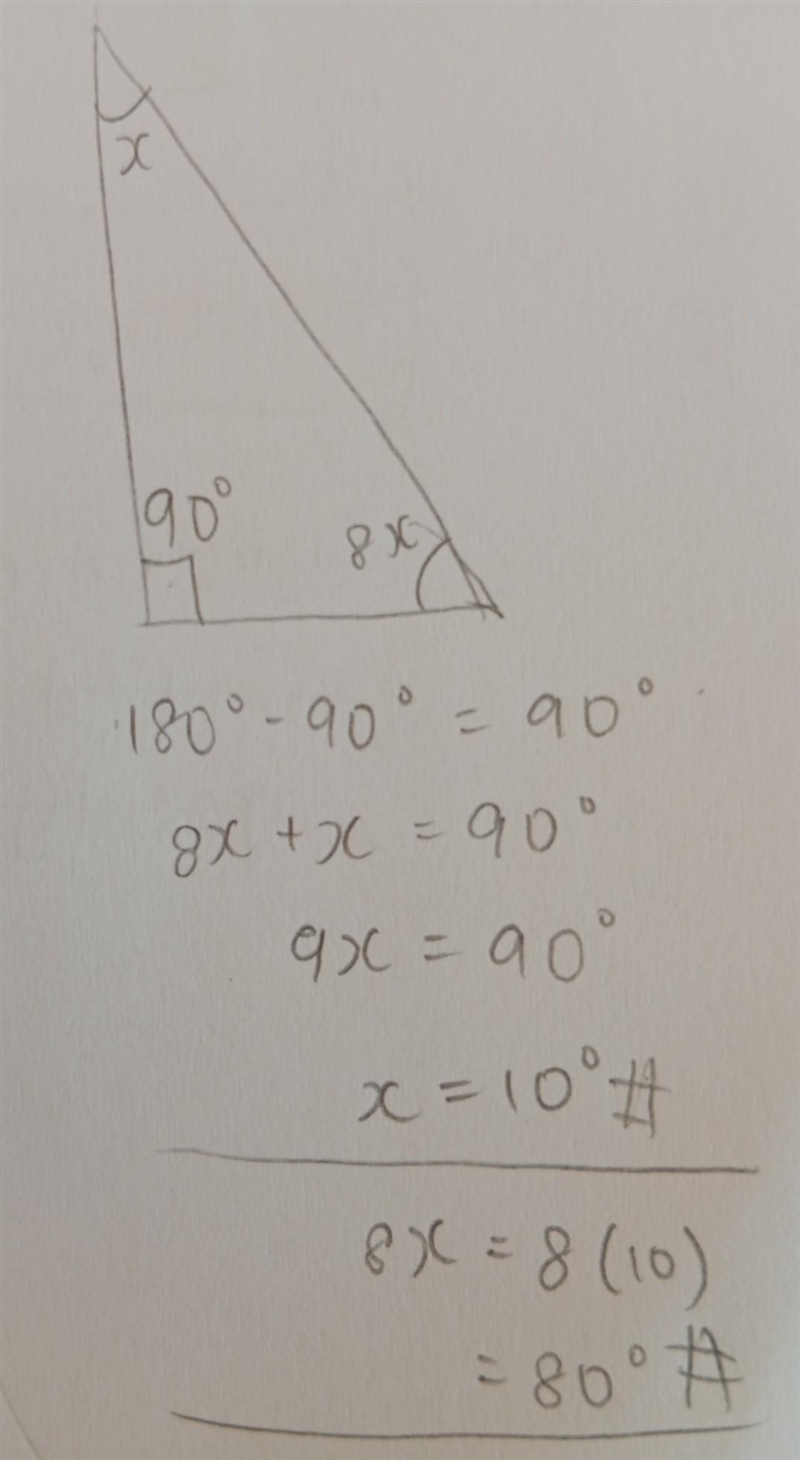 x
90°
8x
180° - 90° = 90°
8x + x = 90°
9x = 90°
x = 10° #
8x = 8(10)
= 80° #